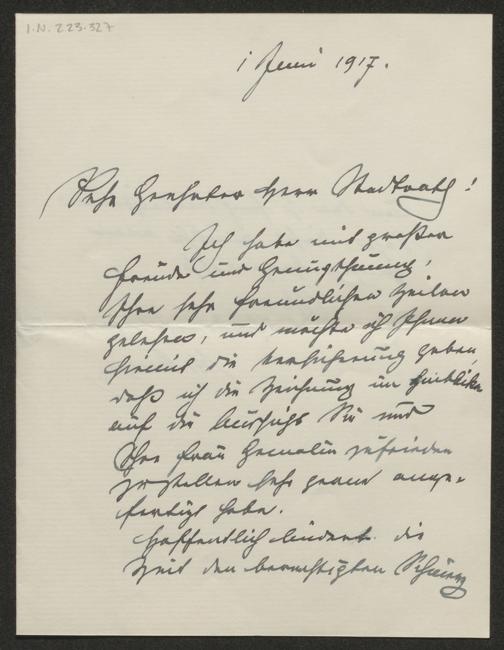 I.N. 223.327
1 Juni 1917.
Sehr Geehrter Herr Stadtrath!
Ich habe mit großer
Freude und Genugthuung,
Ihre sehr freundlichen Zeilen
gelesen, und möchte ich Ihnen
hiemit die Versicherung geben,
daß ich die Zeichnung im Hinblicke
auf die Sie und
Ihre Frau Gemalin zufrieden
zu stellen sehr gerne ange-
fertigt habe.
Hoffentlich lindert die
Zeit den berechtigten Schmerz